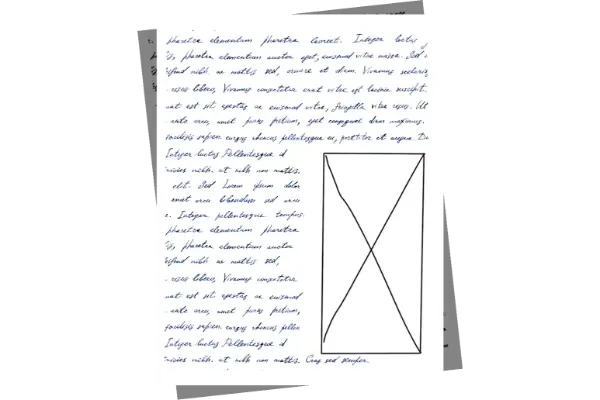 pharetra elementum pharetra laoreet. Integer luctus
pharetra elementum auctor eget, euismod vitae massa. Sed
eifend nibh ac mattis sed, ornare et diam. Vivamus
esces libero, Vivamus consectetur erat vitae est lacinia suscipit.
uat est sit egestas ac euismod vitae, fringilla vitae risus. Ut
ante arcu, amet purus pretium, eget congue diam maximus.
facilisis sapien cursus rhoncus pellentesque eu, porttitor et augue. Do
Integer luctus Pellentesque id
ricies nibh. ut nibh non mattis.
elit. Sed Lorem ipsum dolor
amet arcu bibendum sed
e. Integer pellentesque tempus.
pharetra elementum pharetra
pharetra elementum auctor
eifend nibh ac mattis sed,
esces libero, Vivamus consectetur
uat est sit egestas ac euismod
ante arcu, amet purus pretium,
facilisis sapien cursus rhoncus pellen
Integer luctus Pellentesque id
ricies nibh. ut nibh non mattis. Cras sed semper.